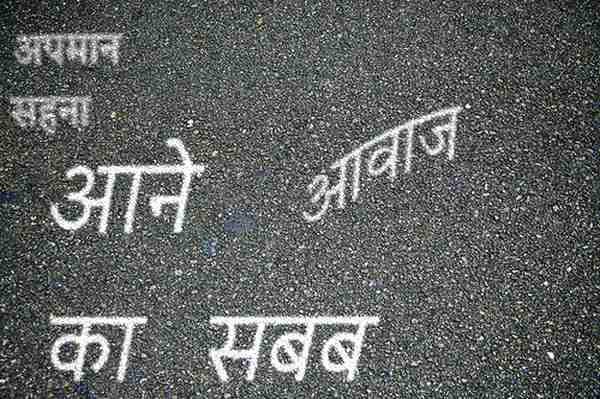 अपमान
सहना
आने आवाज
का सबब